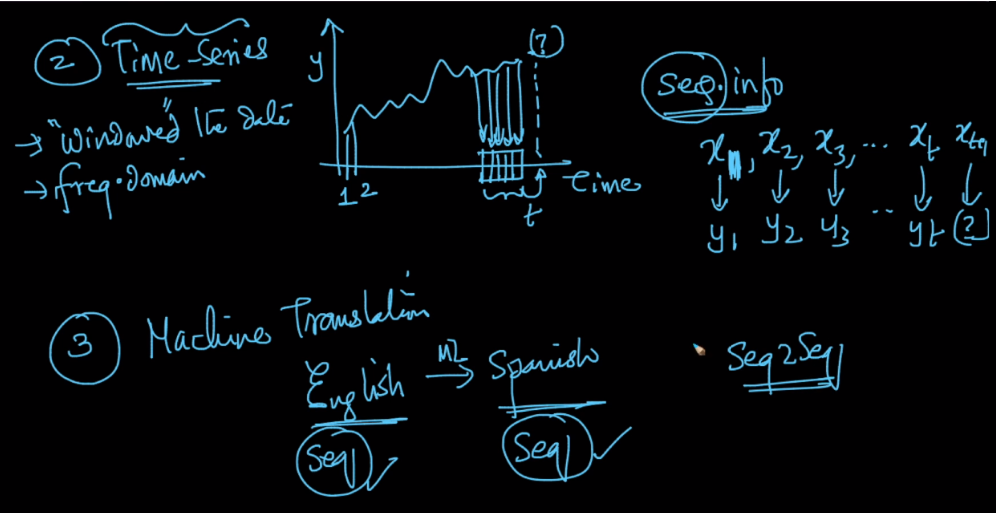 2 Time-Series
→ "Windowed" the data
→ freq. domain
y
1 2
(?)
time
t
Seq. info
x₁, x₂, x₃, ... xₜ xₜ₊₁
y₁ y₂ y₃ .. yₜ (?)
3 Machine Translation
English →ML Spanish
Seq ✓ Seq ✓
Seq2Seq